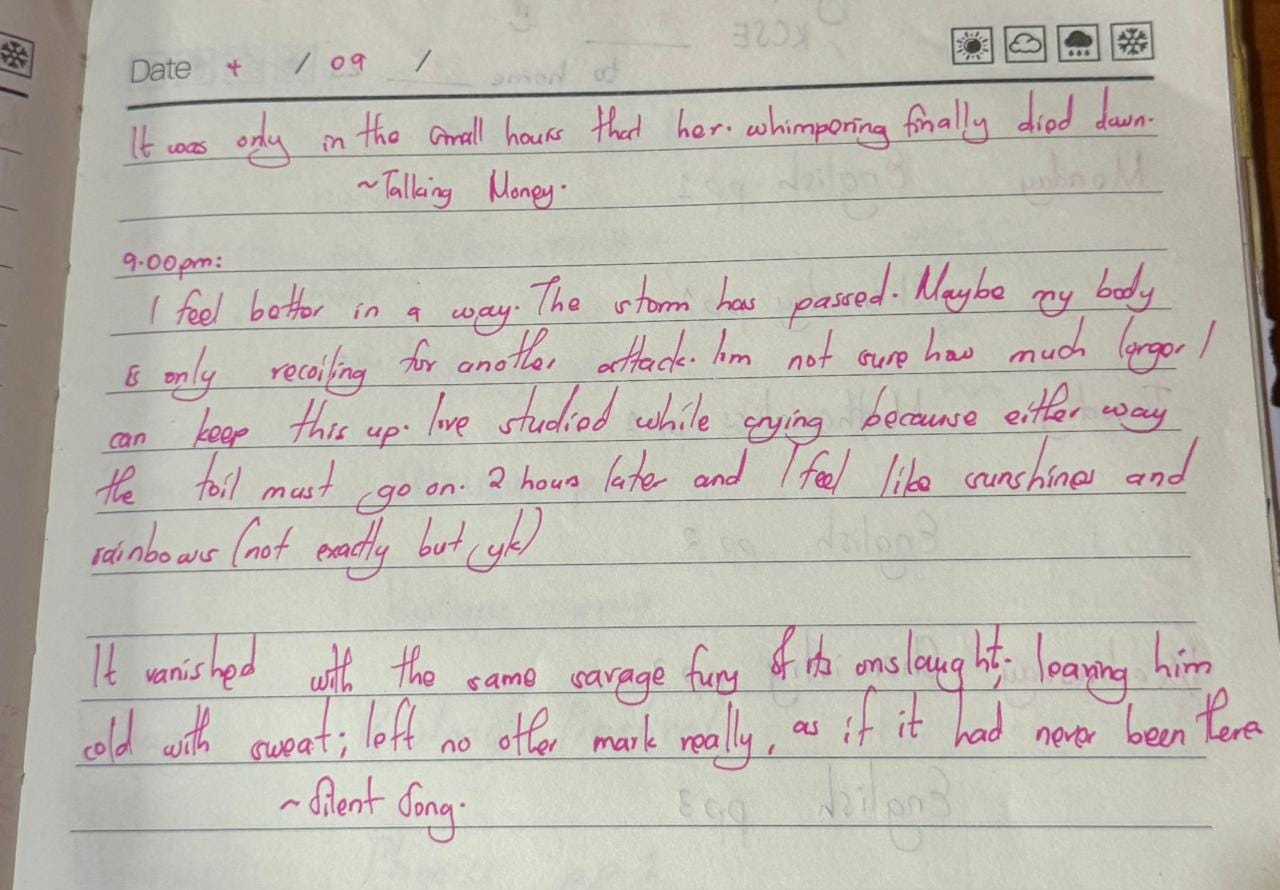 Date + / 09 /
It was only in the small hours that her. whimpering finally died down.
~Talking Money.
9.00pm:
I feel better in a way. The storm has passed. Maybe my body
is only recoiling for another attack. I'm not sure how much longer I
can keep this up. I've studied while crying because either way
the toil must go on. 2 hours later and I feel like sunshines and
rainbows (not exactly but yk)
It vanished with the same savage fury of its onslaught; leaving him
cold with sweat; left no other mark really, as if it had never been there
~Silent Song.